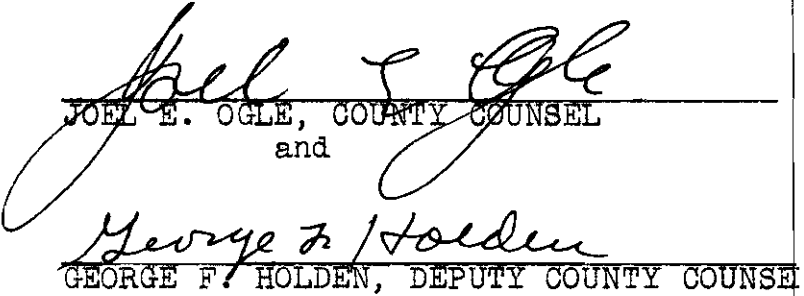 Joel E Ogle
JOEL E. OGLE, COUNTY COUNSEL
and
George F Holden
GEORGE F. HOLDEN, DEPUTY COUNTY COUNSE